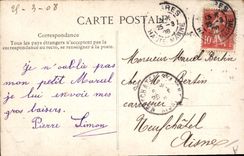 25-3-08
CARTE POSTALE
Correspondance
Tous les pays étrangers n'acceptent pas
la correspondance au recto, se renseigner à la poste.
Je n'oublie pas
mon petit Marcel
je lui envoie mes
gros baisers.
Pierre Simon
Monsieur Marcel Bertin
chez Monsieur Bertin
Neufchâtel
Aisne